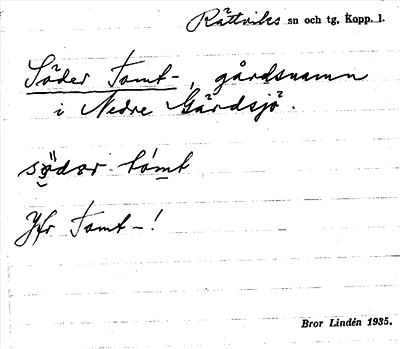 Rättviks sn och tg, Kopp. l.
Söder Tomt-, gårdsnamn
i Nedre Gärdsjö.
södær tómt
Jfr Tomt-!
Bror Lindén 1935.